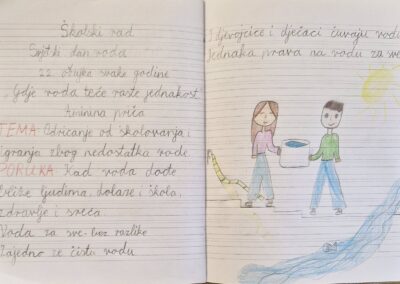 Školski rad
Svjetski dan voda
22. ožujka svake godine
„Gdje voda teče raste jednakost.
Aminina priča
TEMA: Odricanje od školovanja i
igranja zbog nedostatka vode.
PORUKA: Kad voda dođe
bliže ljudima, dolaze i škola,
zdravlje i sreća.
Voda za sve- bez razlike
Zajedno za čistu vodu
I djevojčice i dječaci čuvaju vodu
Jednaka prava na vodu za sve